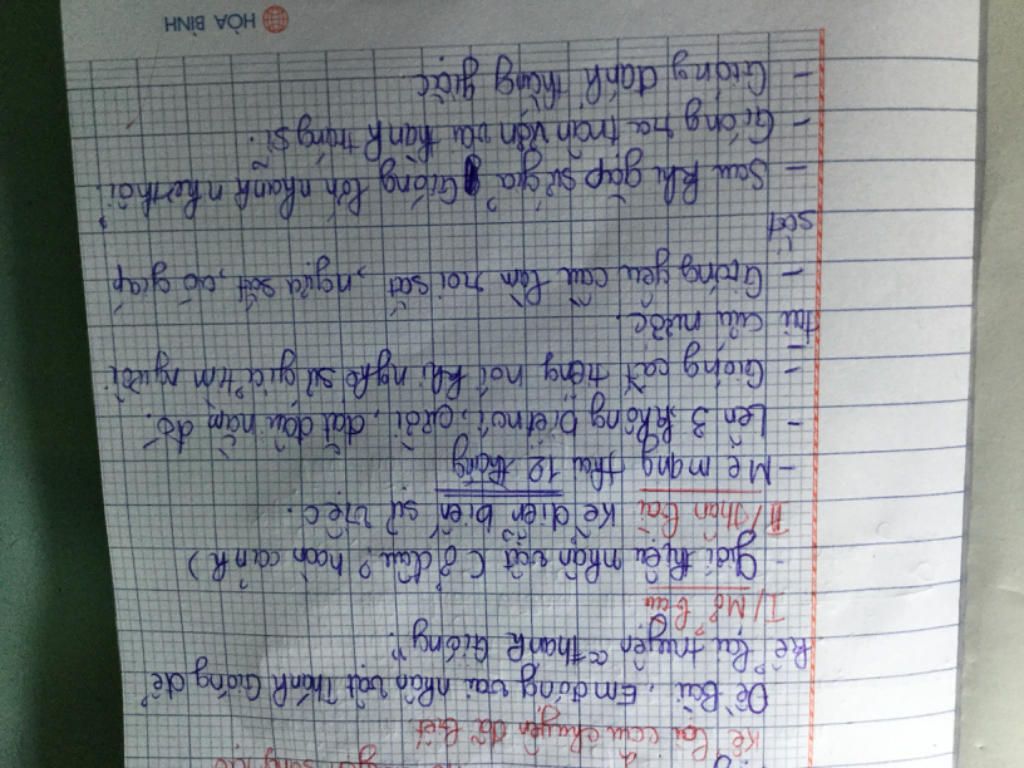 Kể lại câu chuyện đã biết
Đề Bài, Em đóng vai nhân vật Thánh Gióng để
kể lại truyện "Thánh Gióng".
I/ Mở bài
- giới thiệu nhân vật ( ở đâu? hoàn cảnh )
II/ Thân bài kể diễn biến sự việc.
- Mẹ mang thai 12 tháng
- Lên 3 không biết nói, cười, đặt đâu nằm đó.
- Gióng cất tiếng nói khi nghe sứ giả tìm người
tài cứu nước.
- Gióng yêu cầu làm roi sắt, ngựa sắt, áo giáp
sắt
- Sau khi gặp sứ giả Gióng lớn nhanh như thổi.
- Gióng ra trận vươn vai thành tráng sĩ.
- Gióng đánh thắng giặc
HÒA BÌNH